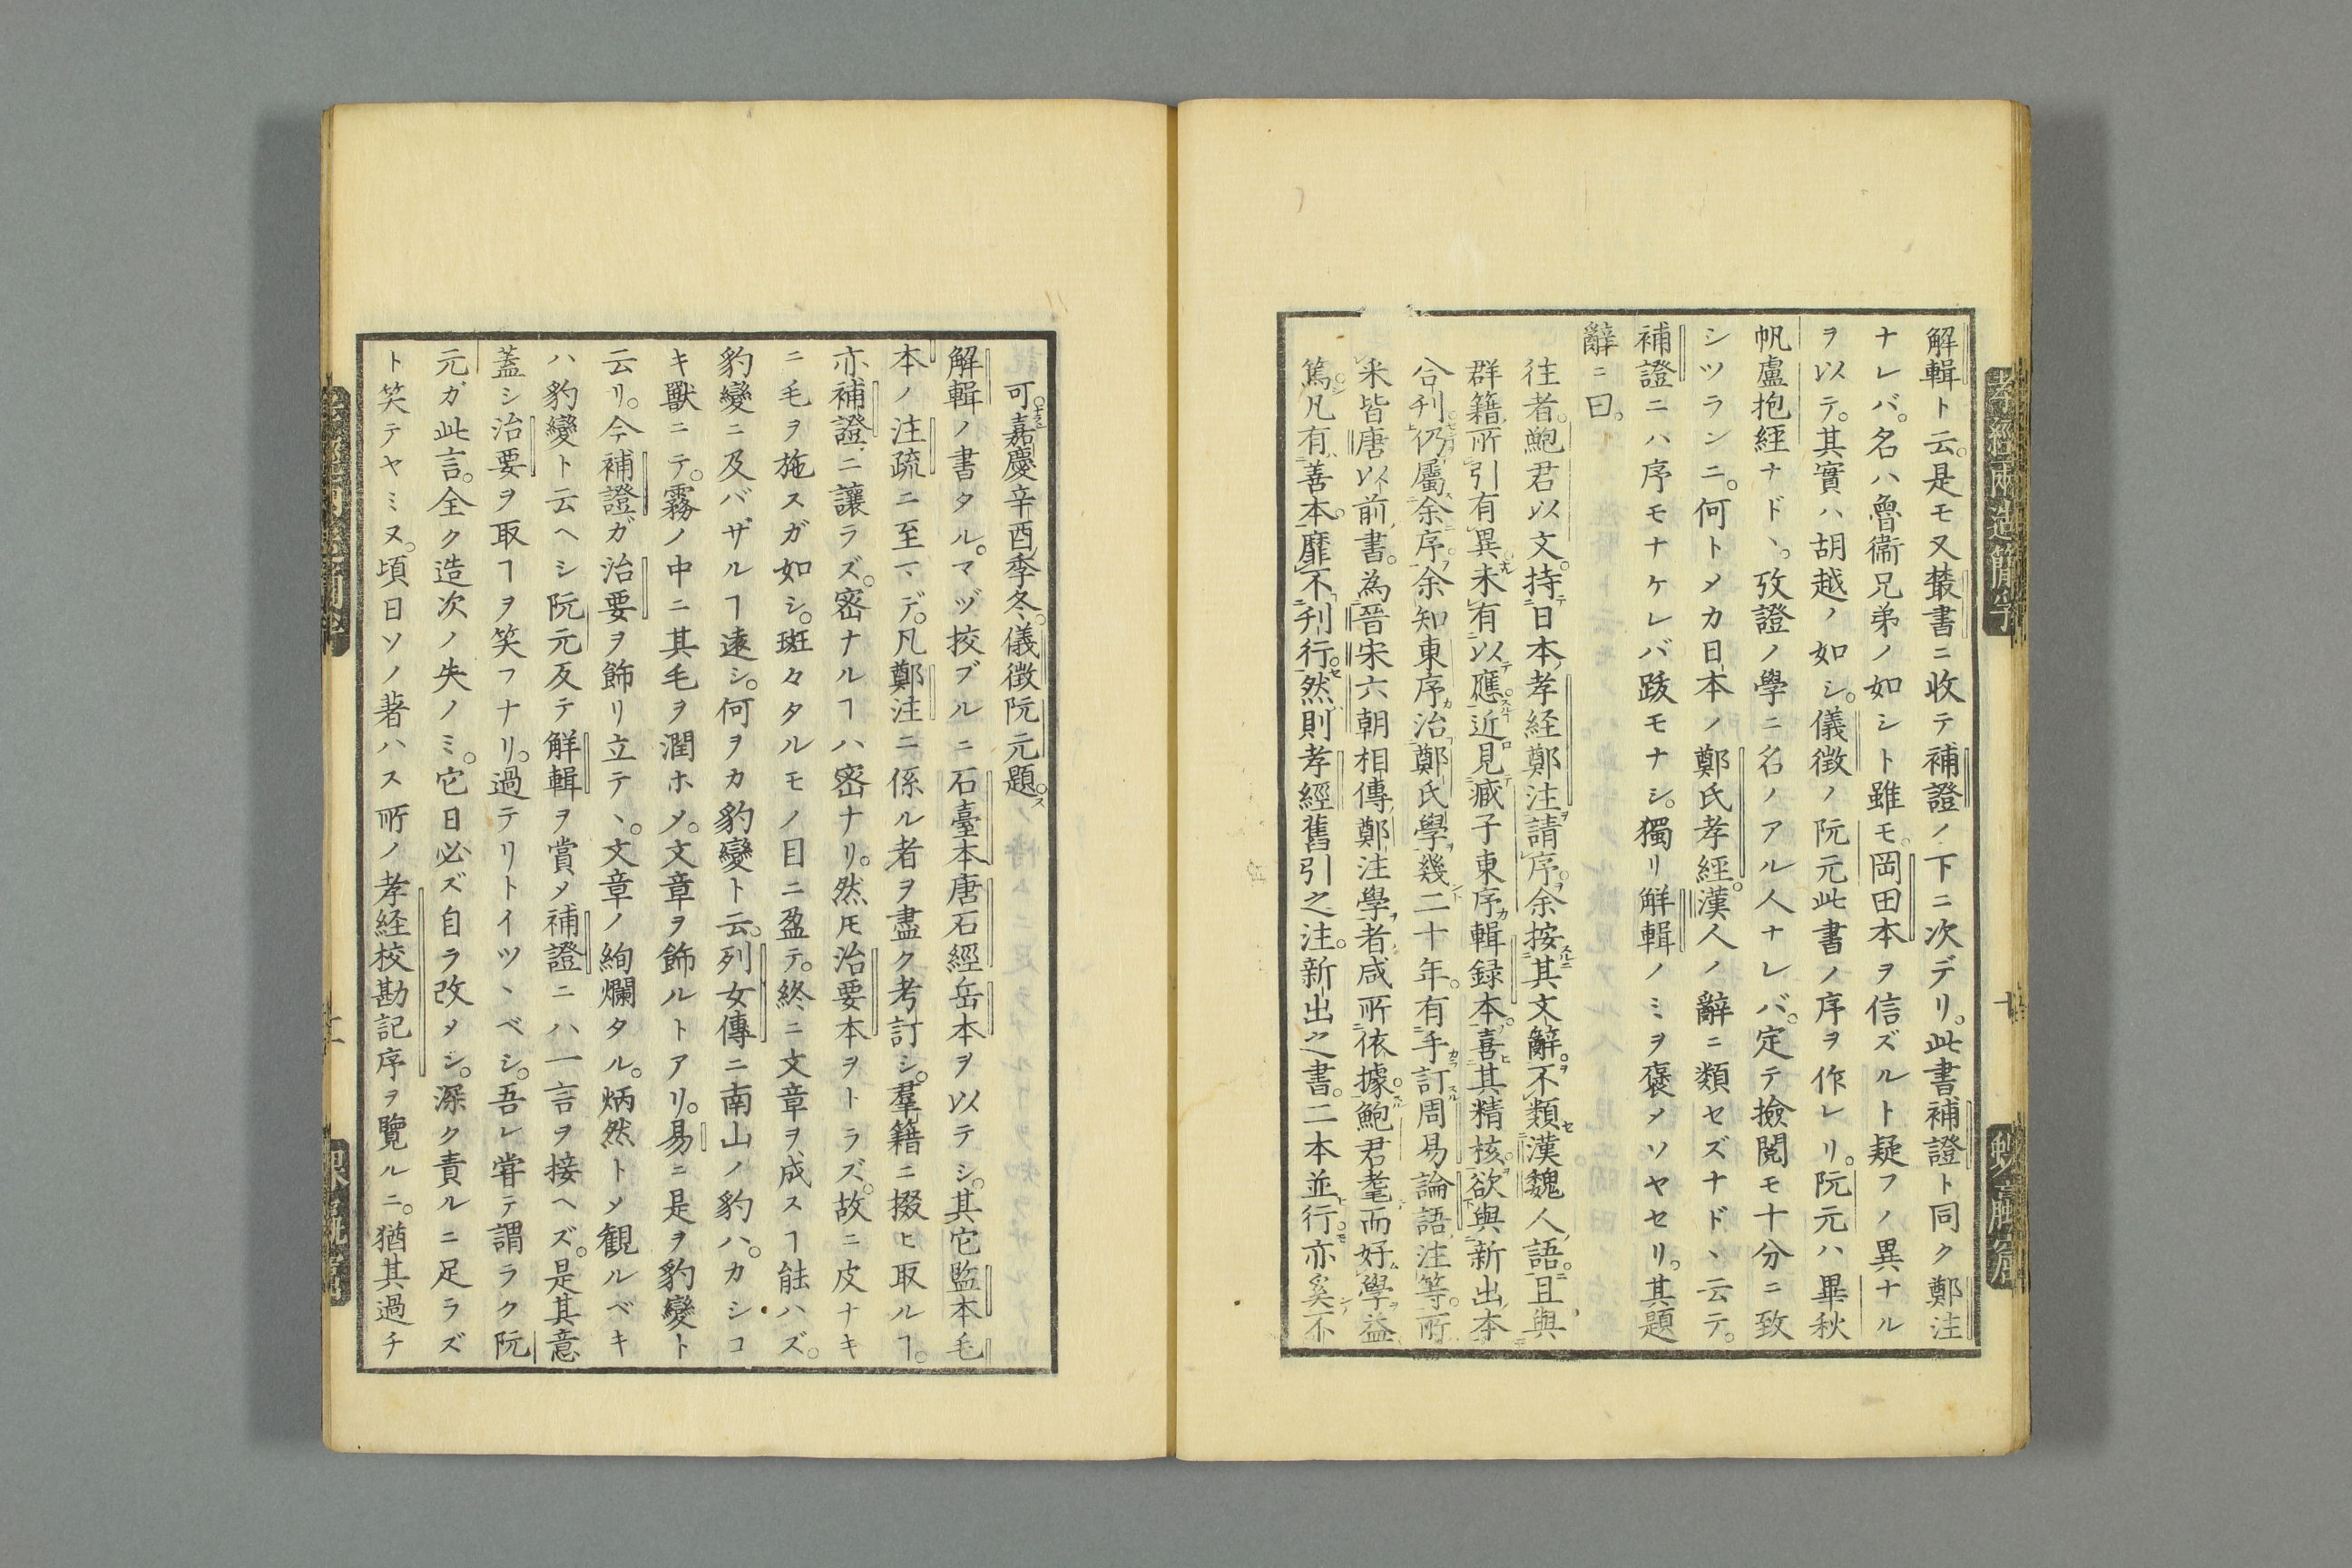 解輯ト云。是モ又叢書ニ收テ補證ノ下ニ次デリ。此書補證ト同ク鄭注
ナレバ。名ハ魯衞兄弟ノ如シト雖モ。岡田本ヲ信ズルト疑フノ異ナル
ヲ以テ。其實ハ胡越ノ如シ。儀徴ノ阮元此書ノ序ヲ作レリ。阮元ハ畢秋
帆盧抱經ナド丶。攷證ノ學ニ名ノアル人ナレバ。定テ撿閲モ十分ニ致
シツランニ。何トメカ日本ノ鄭氏孝經。漢人ノ辭ニ類セズナド丶云テ。
補證ニハ序モナケレバ跋モナシ。獨リ解輯ノミヲ褒メソヤセリ。其題
辭ニ曰。
往者。鮑君以文。持日本孝経鄭注請序。余按其文辭。不類漢魏人語。且與
群籍所引有異。未有以應。近見臧子東序輯録本。喜其精核。欲與新出本
合刊。仍屬余序。余知東序治鄭氏學幾二十年。有手訂周易論語注等。所
采皆唐以前書。為晉宋六朝相傳鄭注學者咸所依據。鮑君耄而好學益
篤。凡有善本。靡不刊行。然則孝經舊引之注。新出之書。二本並行。亦奚不
可。嘉慶辛酉季冬。儀徴阮元題。
解輯ノ書タル。マヅ挍ブルニ石臺本唐石經岳本ヲ以テシ。其它監本毛
本ノ注疏ニ至マデ。凡鄭注ニ係ル者ヲ盡ク考訂シ。羣籍ニ掇ヒ取ルヿ。
亦補證ニ讓ラズ。密ナルヿハ密ナリ。然𪜈治要本ヲトラズ。故ニ皮ナキ
ニ毛ヲ施スガ如シ。斑々タルモノ目ニ盈テ。終ニ文章ヲ成スヿ能ハズ。
豹變ニ及バザルヿ遠シ。何ヲカ豹變ト云。列女傳ニ南山ノ豹ハ。カシコ
キ獸ニテ。霧ノ中ニ其毛ヲ潤ホメ。文章ヲ飾ルトアリ。易ニ是ヲ豹變ト
云リ。今補證ガ治要ヲ飾リ立テ丶。文章ノ絢爛タル。炳然トメ観ルベキ
ハ豹變ト云ヘシ阮元反テ解輯ヲ賞メ補證ニハ一言ヲ接ヘズ。是其意
蓋シ治要ヲ取ヿヲ笑フナリ。過テリトイツ丶ベシ。吾レ甞テ謂ラク阮
元ガ此言。全ク造次ノ失ノミ。它日必ズ自ラ改メシ。深ク責ルニ足ラズ
ト笑テヤミヌ。頃日ソノ著ハス所ノ孝経校勘記序ヲ覽ルニ。猶其過チ